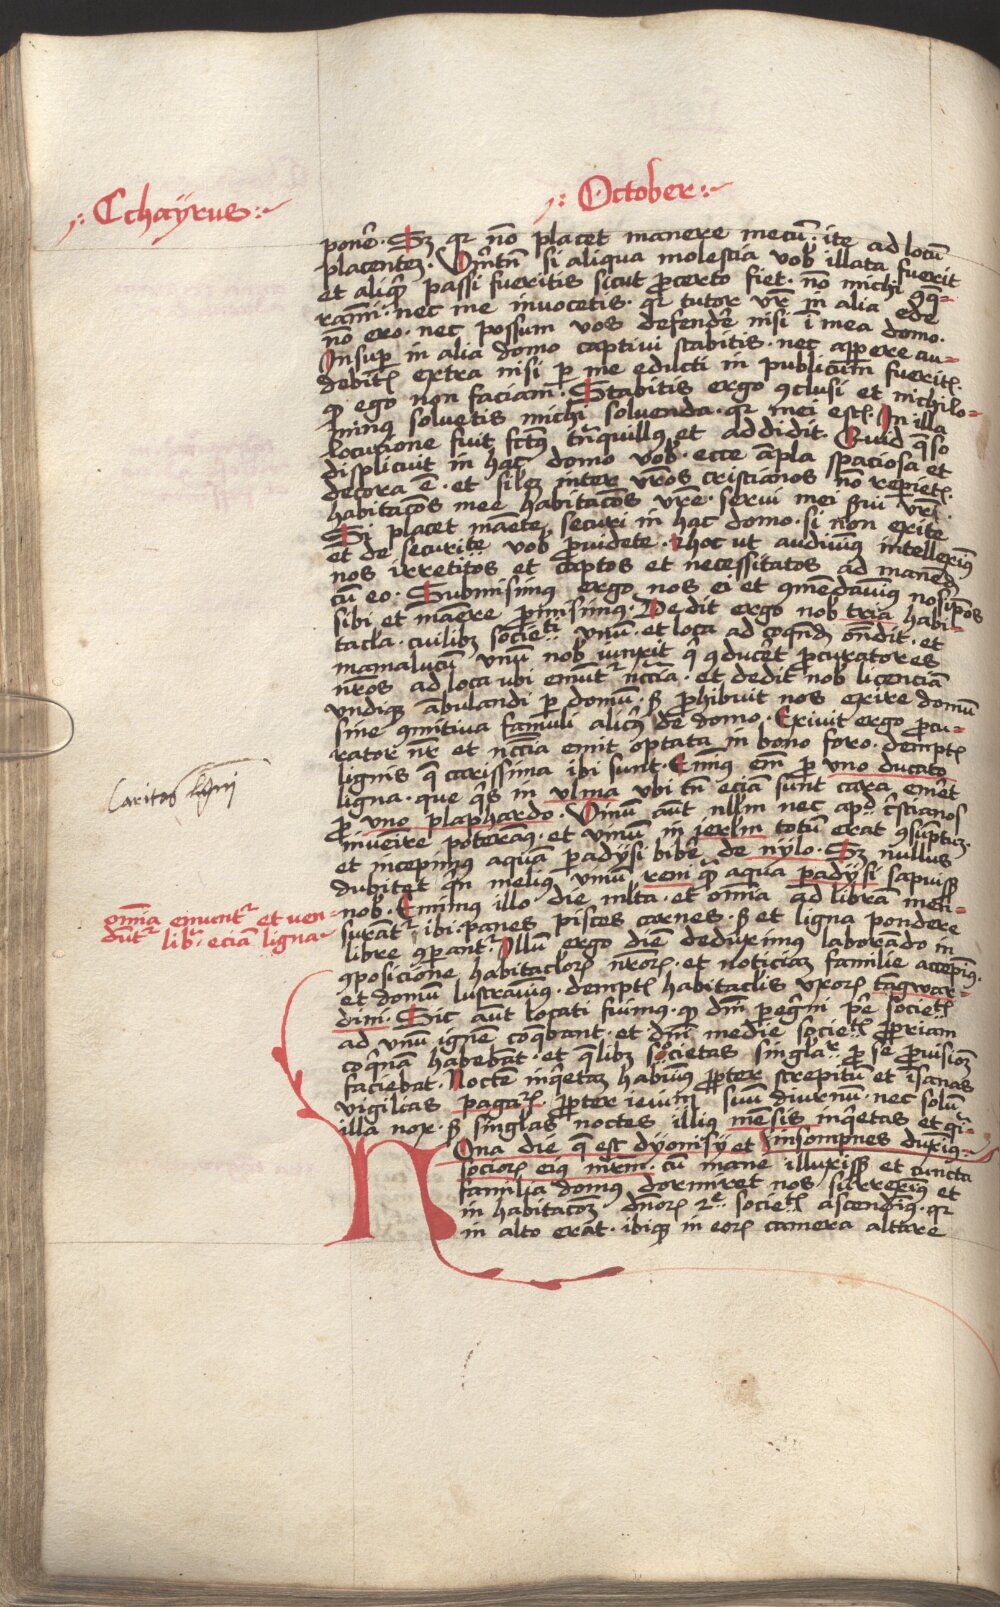 Cchayrus
October
ponē. Sz qr nō placet manere mecū. ite ad locū
placentez. Vmtn̄ si aliqua molestia vob illata fuerit
et aliqd passi fueritis sicut pcerto fiet. nō michi 9q̄=
rāmi. nec me invocetis. qr tutor vr̄ in alia ede
nō ero. nec possum vos defendē nisi ī mea domo.
Insup in alia domo captivi stabitis. nec appere au=
debitis extra nisi p me educti in publicum fueritis.
qd ego non faciam. Stabitis ergo 9clusi et nichilo=
minus soluetis michi soluenda. qr mei estis. In illa
locucione fuit fctus trāquillus et addidit. Quid q̄so
displicuit in hac domo vob. ecce āpla spaciosa et
decora ē. et silez inter vr̄os cristianos nō repietis.
habitacōes mee habitacōes vr̄e. serui mei serui vri.
Si placet māete securi in hac domo. si non exite
et de securitate vob pvidete. Thoc ut audivimus intelleximus
nos irretitos et captos et necessitatos ad manend
cū eo. Submisimus ergo nos ei et 9mēdavimus nosipōs
sibi et māere pmisimus. Dedit ergo nob tria habi=
tacla. cuilibz societati vnū. et loca ad coqnd ōndit. et
mamalucū vnū nob iunxit q 9ducēt pcuratores
nr̄os ad loca ubi emūtr n̄ccia. et dedit nob licenciā
vndiqz ābulandi p domū. sz phibuit nos exire domū
sine 9mitiva famuli alicus de domo. Exivit ergo pcu=
rator nr̄ et n̄ccia emit optata in bono foro. demptis
lignis q̄ carissima ibi sunt. Emimus em̄ p vno ducato
ligna. que q̄s in vlma ubi tn̄ eciā sunt cara emēt
p vno plaphardo. Vinū aūt nllm nec apd cr̄stianos
invenire poteramus. et vinum in ierlm totū erat 9sūptuz.
et incepimus aquā padysi bibē de nylo. Sz nullus
dubitet qn melius vinū rem qd aqua padysi sapuissz
nob. Emimus illo die mlta. et omīa ad librā men=
suratr ibi. panes pisces carnes. sz et ligna pondere
libre 9perantr. Illū ergo diē deduximus laborādo in
9posicione habitaclorz nr̄orz. et noticiaz familie accepimus.
et domū lustravimus. demptis habitaclis vxorz tāgwar=
dini. Sic aūt locati fuimus. qd dm̄ pegrini pe societatis
ad vnū ignē coqbant. et dm̄ medie societatis ppriam
coqnā habebāt. et qlibz societas singlar p se pvisiōz
faciebat. Noctē inqetaz habuimus ppter strepitū et īsanas
vigilias pagarz. ppter ieiuniū suū diurnū. nec solū
illa nox. sz singlas noctes illius mēsis inqetas et qi=
Nona die q̄ est dyonisy et insompnes duximus.
sociorz eius mrm. cū mane illuxissz et cuncta
familia domus dormiret nos surreximus et
in habitacōz dnorz 2e societatis ascendimus. qr
in alto erāt. ibiqz in eorz camera altare
Caritas ligni
omīa emuntr et ven=
dūtr librā eciā ligna